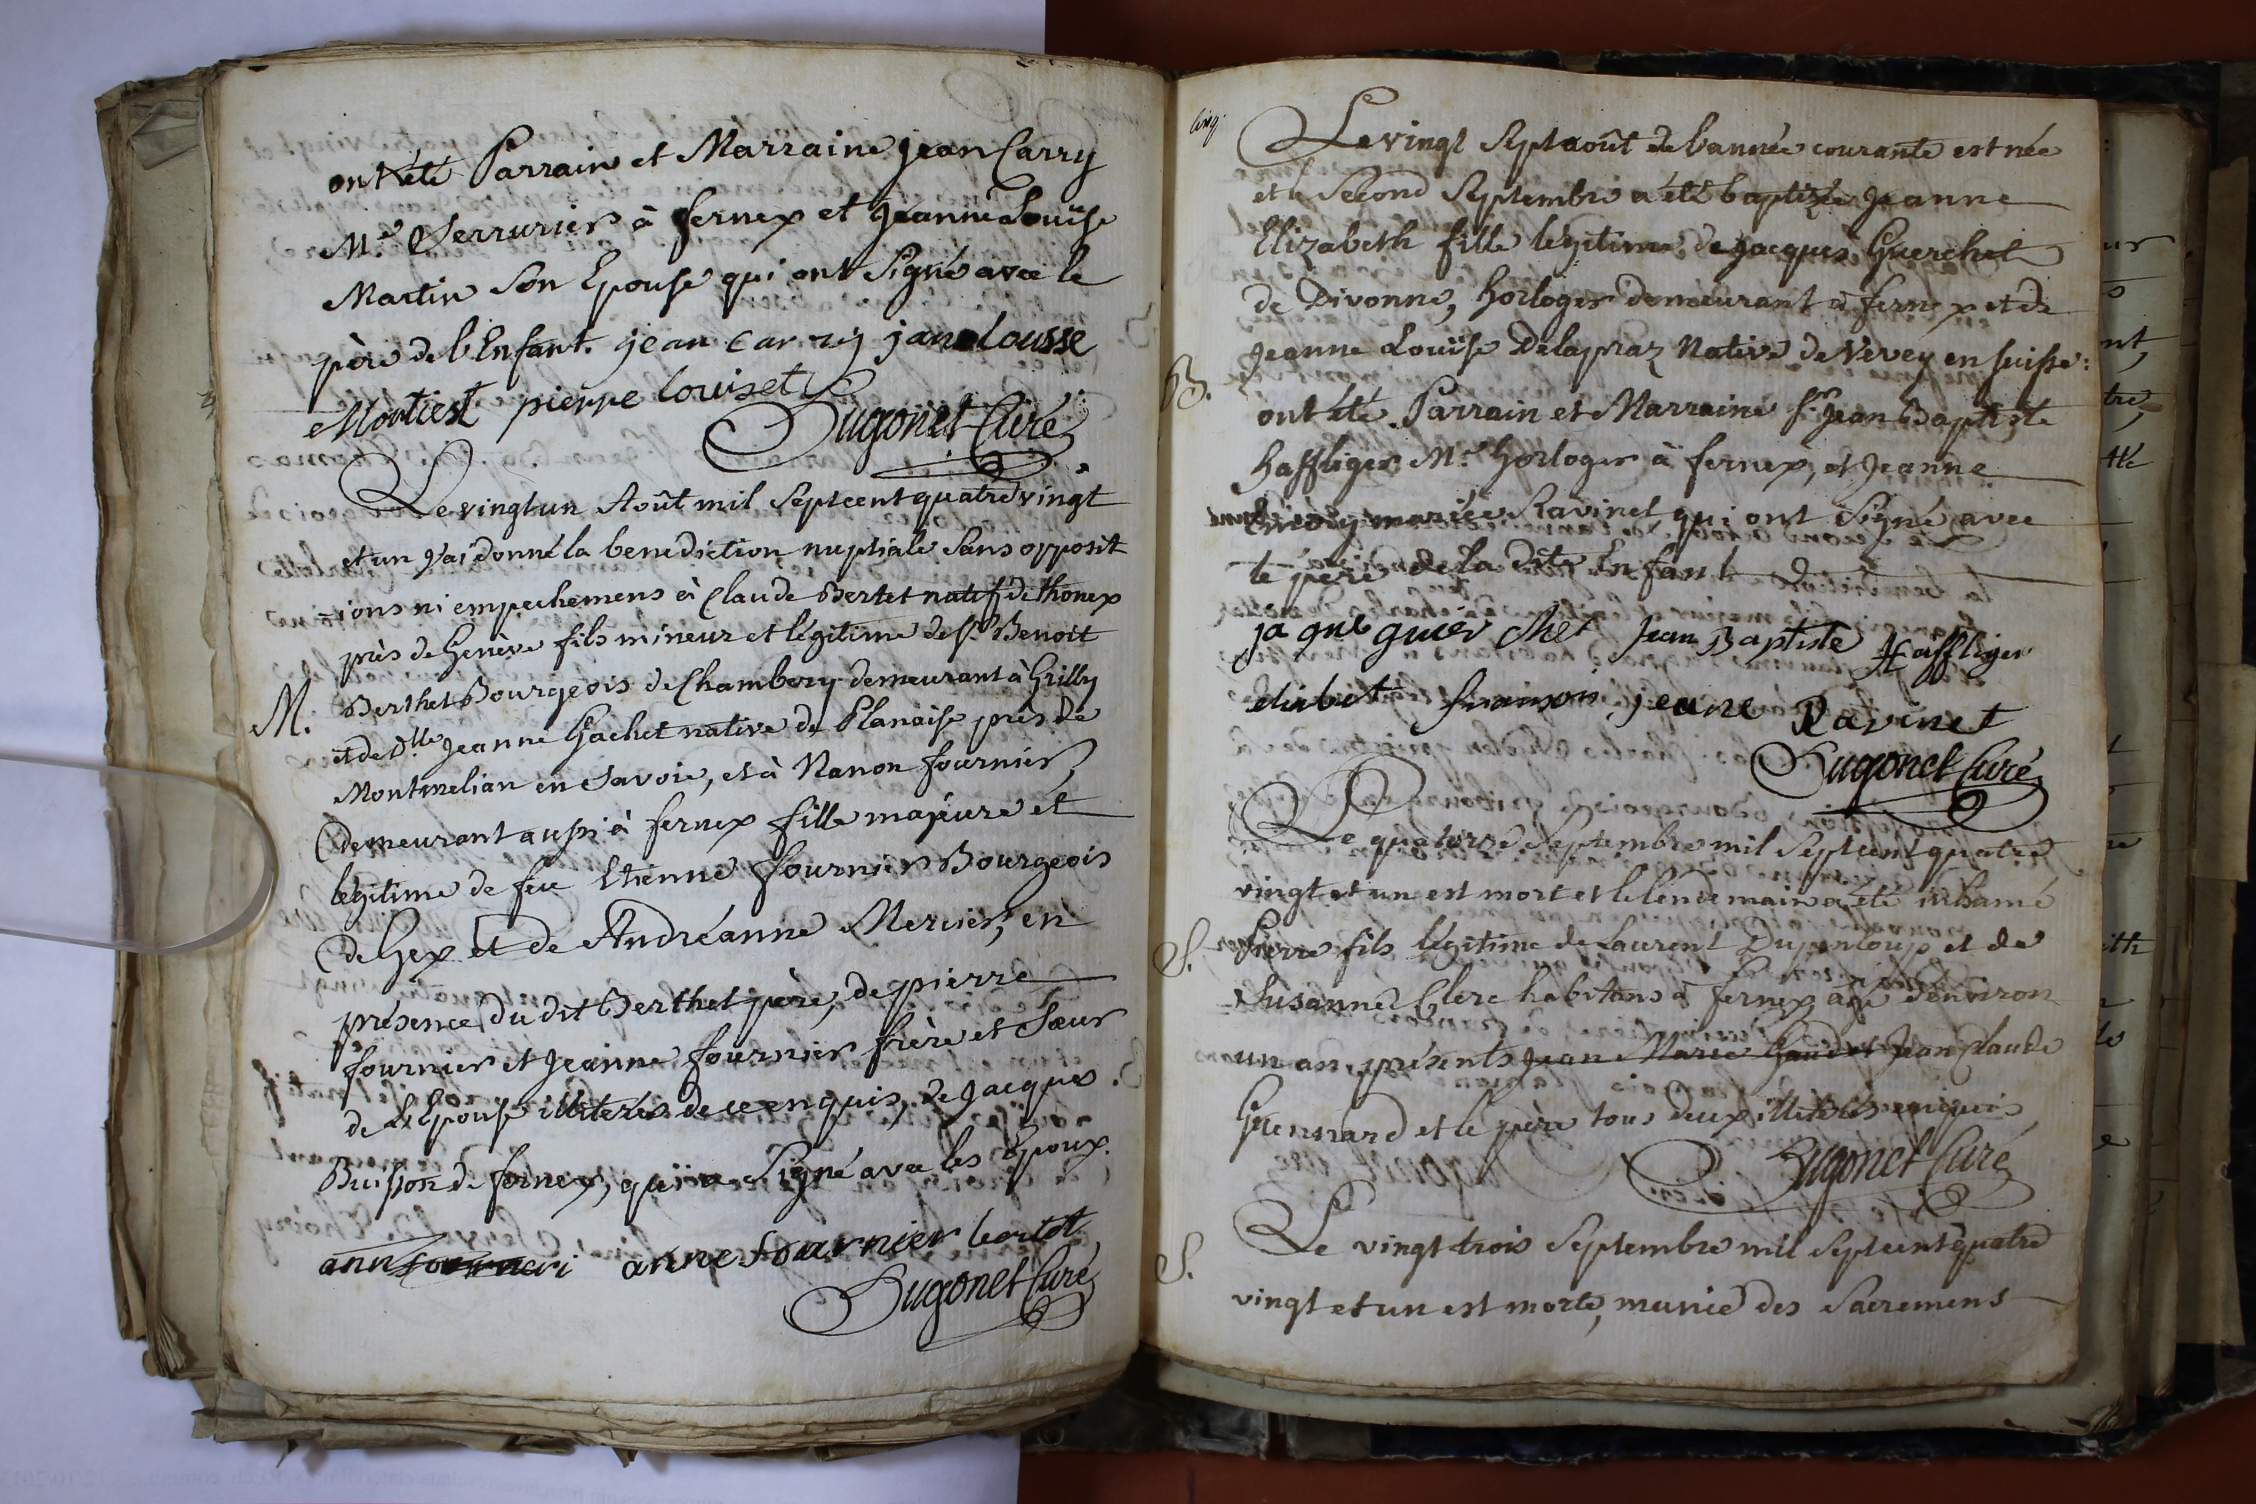 ont été Parrain et Marraine Jean Carry
M.e Serrurier à fernex et Jeanne Louïse
Martin Son Epouse qui ont Signé avec le
père de l'Enfant. jean carry jane lousse
pierre louiset
Dugonet Curé
Le vingt un Août mil Septcent quatre vingt
et un j'ai donné la benediction nuptiale Sans opposit
ions ni empechemens à Claude Bertet natif de thonex
près de Genève fils mineur et légitime de S.r Benoit
M. Berthet Bourgeois de Chambery demeurant à Grilly
et de D.lle Jeanne Gachet native de Planaise près de
Montmelian en Savoie, et à Nanon fournier,
demeurant aussi à fernex fille majeure et
legitime de feu Etienne fournier Bourgeois
de Gex et de Andréanne Mercier, en
présence du dit Berthet père, de pierre
fournier et Jeanne fournier frère et Sœur
de l'Epouse illiterés de ce enquis, de Jacques
Buisson de fernex, qui a Signé avec les Epoux.
anne fournier bertet
Dugonet Curé
cinq.
Le vingt Sept août de l'année courante est née
et le Second Septembre a été baptizée Jeanne
Elizabeth fille legitime de Jacques Guerchet
de Divonne, horloger demeurant à fernex et de
Jeanne Louïse Delapraz Native de Vevey en Suisse:
B. ont été Parrain et Marraine S.r Jean Baptiste
haffliger M.e horloger à fernex, et Jeanne
mariée Ravinet qui ont Signé avec
le père de la dite Enfant
jaque guier chet Jean Baptiste Haffliger
jeane Ravinet
Dugonet Curé
Le quatorze Septembre mil Septcent quatre
vingt et un est mort et le lendemain a été inhumé
S. Pierre fils légitime de Laurent Dupenloup et de
Susanne Clerc habitans à fernex âgé d'environ
un an, présents Jean Marie Gaudet Jean Claude
Guennard et le père tous deux illiterés enquis
Dugonet Curé
S. Le vingt trois Septembre mil Septcent quatre
vingt et un est morte, munie des Sacremens